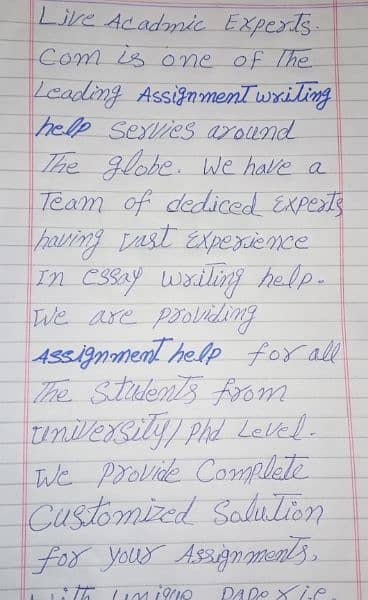 Live Acadmic Experts.
Com is one of The
Leading Assignment writing
help servies around
The globe. We have a
Team of dediced Experts
having vast Experience
In essay writing help.
We are providing
Assignment help for all
The Students from
university/Phd Level.
We Provide Complete
Customized Solution
for your Assignments,
with unique